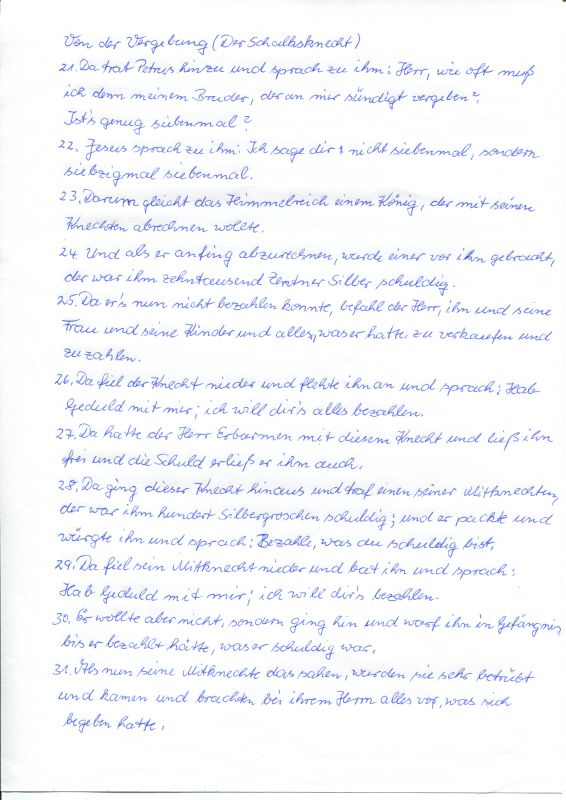 Von der Vergebung (Der Schalksknecht)
21. Da trat Petrus hinzu und sprach zu ihm: Herr, wie oft muß
ich denn meinem Bruder, der an mir sündigt vergeben?,
Ist's genug siebenmal?
22. Jesus sprach zu ihm: Ich sage dir: nicht siebenmal, sondern
siebzigmal siebenmal.
23. Darum gleicht das Himmelreich einem König, der mit seinen
Knechten abrechnen wollte.
24. Und als er anfing abzurechnen, wurde einer vor ihn gebracht,
der war ihm zehntausend Zentner Silber schuldig.
25. Da er's nun nicht bezahlen konnte, befahl der Herr, ihn und seine
Frau und seine Kinder und alles, was er hatte zu verkaufen und
zu zahlen.
26. Da fiel der Knecht nieder und flehte ihn an und sprach: Hab
Geduld mit mir; ich will dir's alles bezahlen.
27. Da hatte der Herr Erbarmen mit diesem Knecht und ließ ihn
frei und die Schuld erließ er ihm auch.
28. Da ging dieser Knecht hinaus und traf einen seiner Mitknechten,
der war ihm hundert Silbergroschen schuldig; und er packte und
würgte ihn und sprach: Bezahle, was du schuldig bist.
29. Da fiel sein Mitknecht nieder und bat ihn und sprach:
Hab Geduld mit mir; ich will dir's bezahlen.
30. Er wollte aber nicht, sondern ging hin und warf ihn in Gefängnis,
bis er bezahlt hätte, was er schuldig war.
31. Als nun seine Mitknechte das sahen, wurden sie sehr betrübt
und kamen und brachten bei ihrem Herrn alles vor, was sich
begeben hatte.